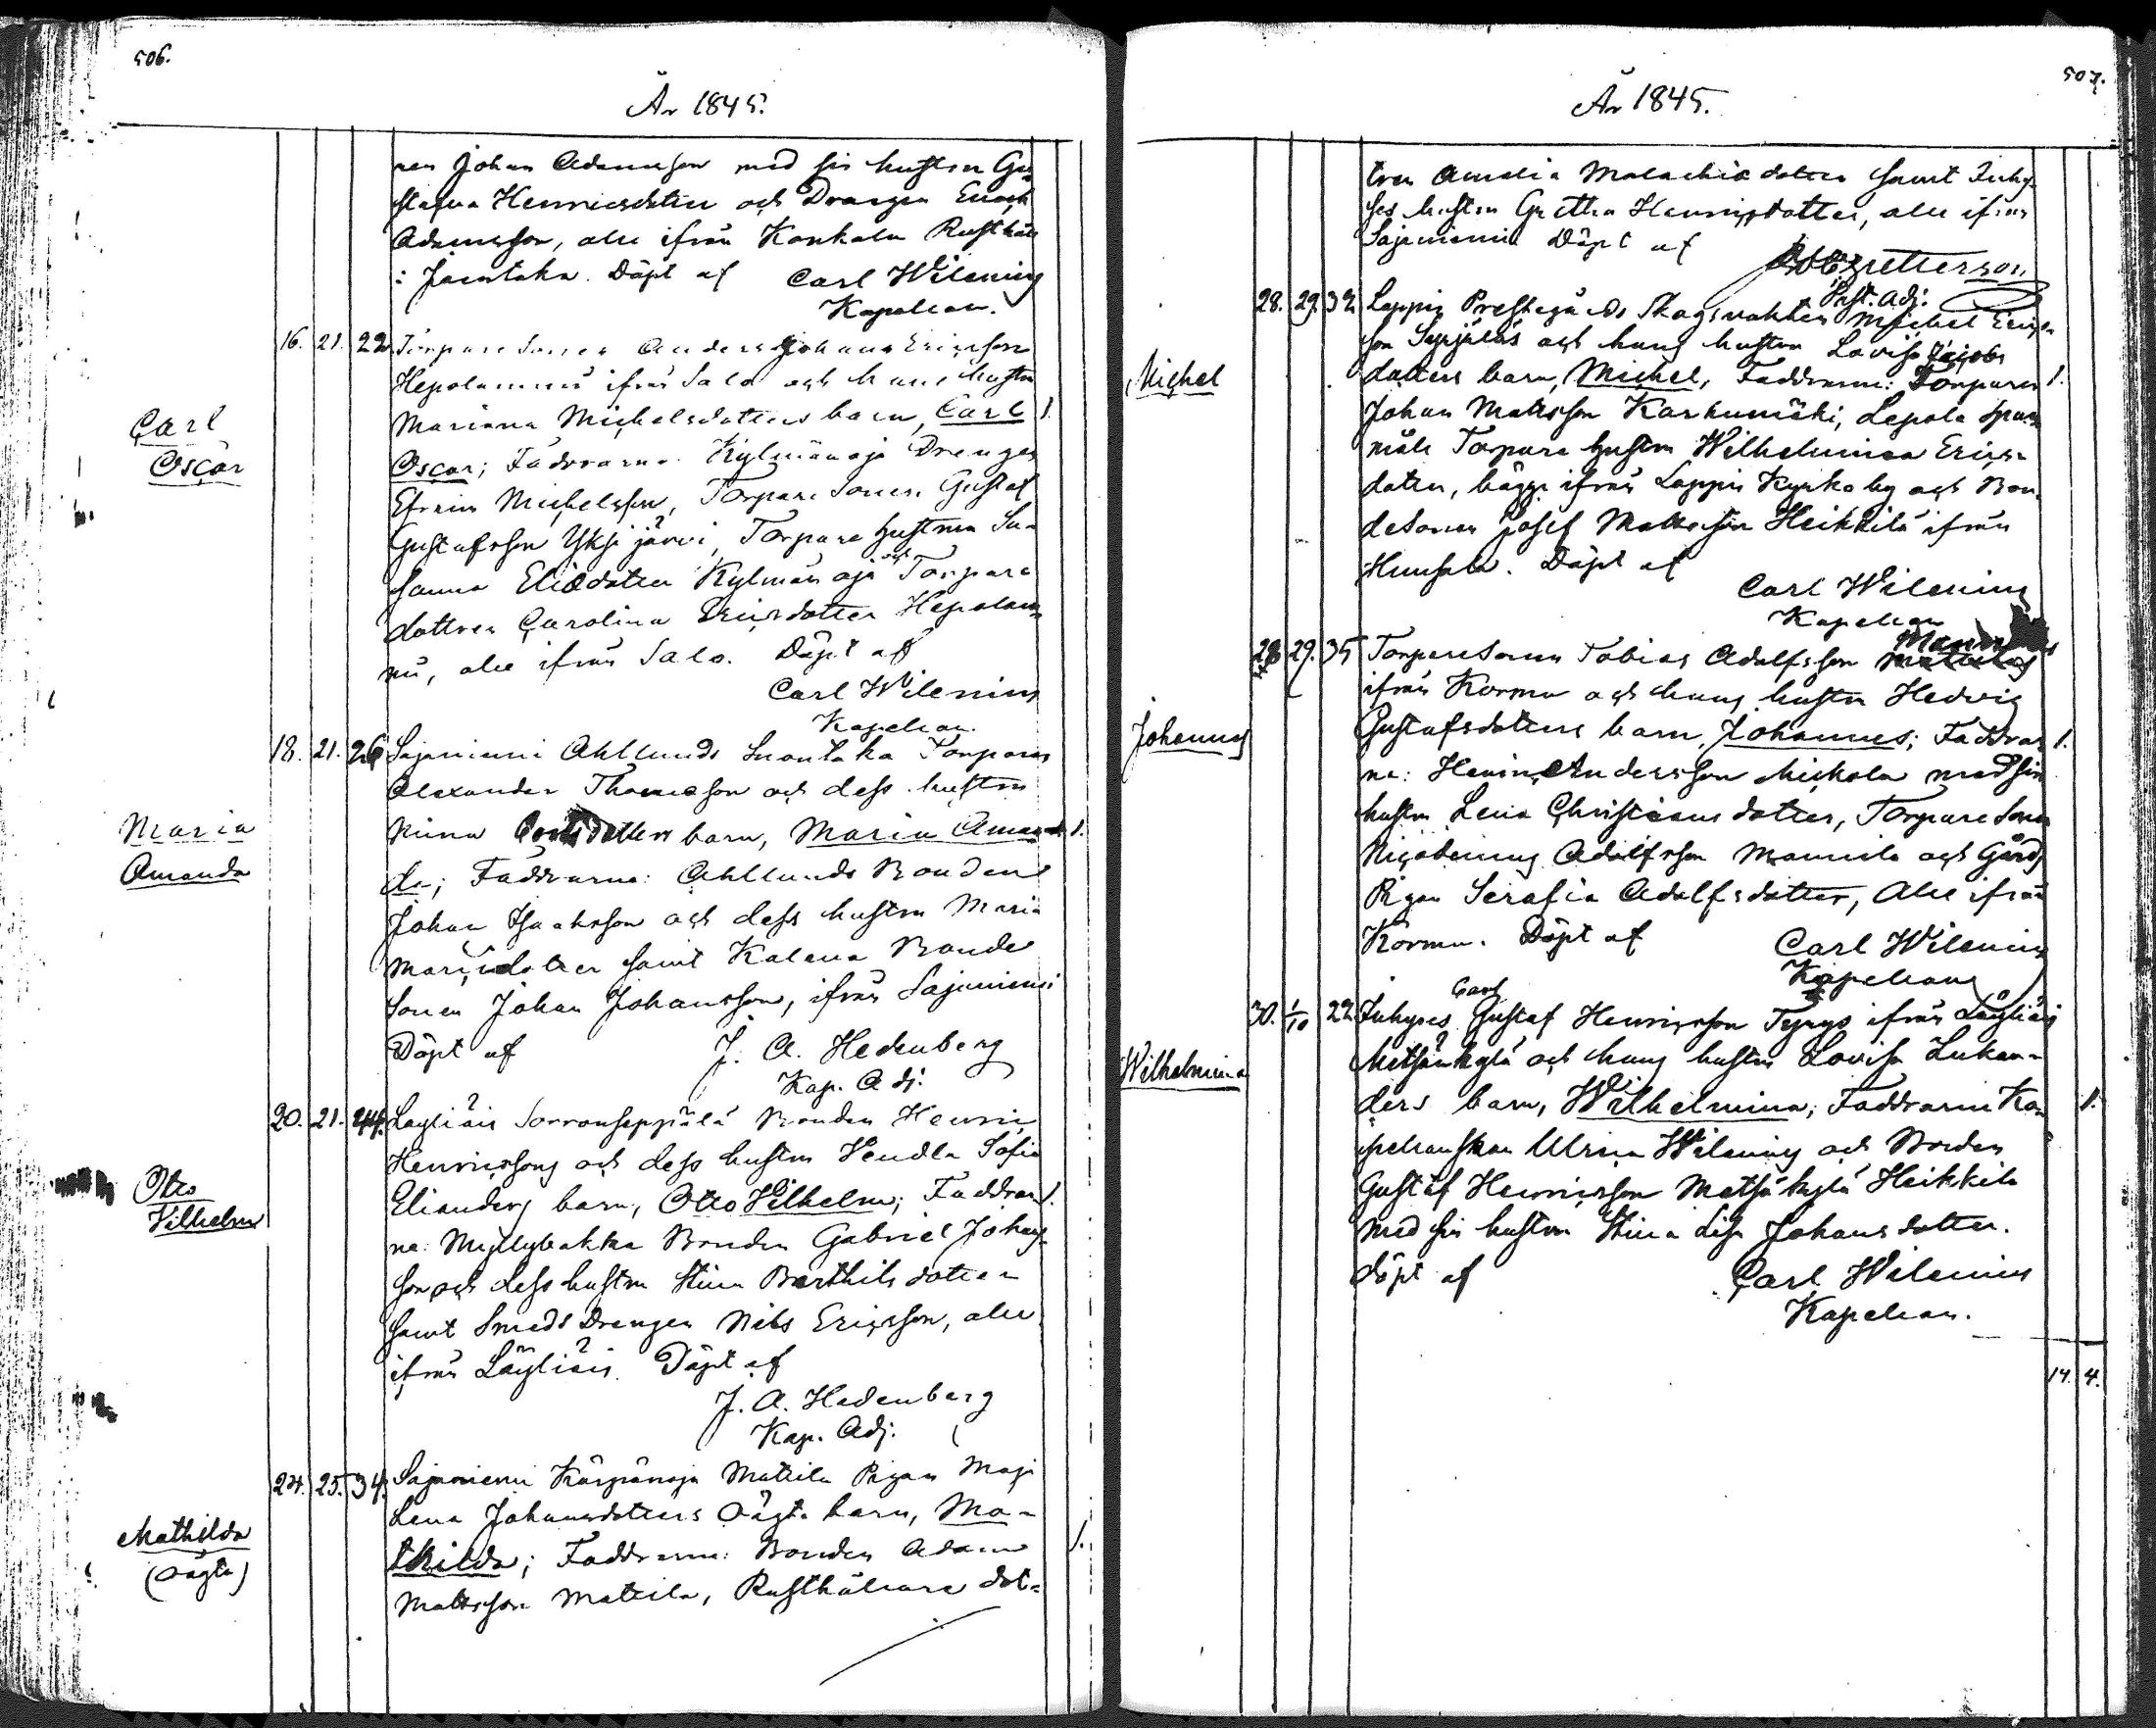 506.
År 1845.
ren Johan Adamsson med sin hustru Gu-
stafva Henricsdotter och Drängen Enoch
Adamsson, alla ifrån Konkala Rusthåll
i Jaentaka. Döpt af Carl Wilenius
Kapellan.
16. 21. 22. Torpare Sonen Anders Johan Ericsson
Hepolammi ifrån Salo och hans hustru
Carl
Mariana Michelsdotters barn, Carl 1.
Oscar
Oscar; Faddrarna: Kylmänoja Drengen
Efraim Michelsson, Torpare Sonen Gustaf
Gustafsson Yksjärvi, Torpare hustrun Su-
sanna Eliædotter Kylmänoja och Torpare
dottren Carolina Ericsdotter Hepolam-
mi, alla ifrån Salo. Döpt af
Carl Wilenius
Kapellan.
18. 21. 26. Sajaniemi Ahllunds Suontaka Torparen
Alexander Thomasson och dess hustru
Maria
Amanda
Mina dotters barn, Maria Aman- 1.
da; Faddrarna: Ahllunds Bonden
Johan Isaaksson och dess hustru Maria
dotter samt Kalana Bonde
Sonen Johan Johansson, ifrån Sajaniemi
Döpt af J. A. Hedenberg
Kap. Adj.
20. 21. 24. Läyliäis Sorronseppälä Bonden Henric
Henricssons och dess hustru Hendla Sofia
Otto
Vilhelm
Elianders barn, Otto Vilhelm; Faddrar- 1.
na: Myllybakka Bonden Gabriel Johans-
son och dess hustru Stina Barthilsdotter
samt Smeds Drengen Nils Ericsson, alla
ifrån Läyliäis. Döpt af
J. A. Hedenberg
Kap. Adj.
24. 25. 34. Sajaniemi Kärpänoja Mattila Pigan Maja
Lena Johansdotters oägta barn, Ma-
Mathilda
(oägta)
thilda; Faddrarne: Bonden Adam 1.
Mattsson Mattila, Rusthållare dot-
507.
År 1845.
tren Amalia Malachiædotter samt Inhy-
ses hustru Gretha Henricsdotter, alla ifrån
Sajaniemi Döpt af
Petterson
Past. Adj.
28. 29. 32. Loppis Prestegårds Skogsvakten Michel Erics-
son Syrjäläs och hans hustru Lovisa Jacobs
Michel
dotters barn, Michel, Faddrarne: Torparen 1.
Johan Mattsson Karhumäki, Lepola Span-
måls Torpare hustru Wilhelmina Erics-
dotter, bägge ifrån Loppis Kyrkoby och Bon-
deSonen Josef Mattsson Heikkilä ifrån
Hunsala. Döpt af
Carl Wilenius
Kapellan
28. 29. 35. TorpareSonen Tobias Adolfsson
ifrån Kormu och hans hustru Hedvig
Johannes
Gustafsdotters barn, Johannes; Faddrar- 1.
na: Henric Andersson Mickola med sin
hustru Lena Christiansdotter, Torpare Sonen
Nicodemus Adolfsson Mannila och Gårds
Pigan Serafia Adolfsdotter, alla ifrån
Kormu. Döpt af Carl Wilenius
Kapellan
30. 1/10 22. Inhyses Carl Gustaf Henricsson Tyrys ifrån Läyliäis
Metsänkylä och hans hustru Lovisa Lukan-
Wilhelmina
ders barn, Wilhelmina; Faddrarne Ka- 1.
pellanskan Ulrica Wilenius och Bonden
Gustaf Henricsson Metsäkylä Heikkilä
med sin hustru Stina Lisa Johansdotter.
Döpt af Carl Wilenius
Kapellan.
14. 4.